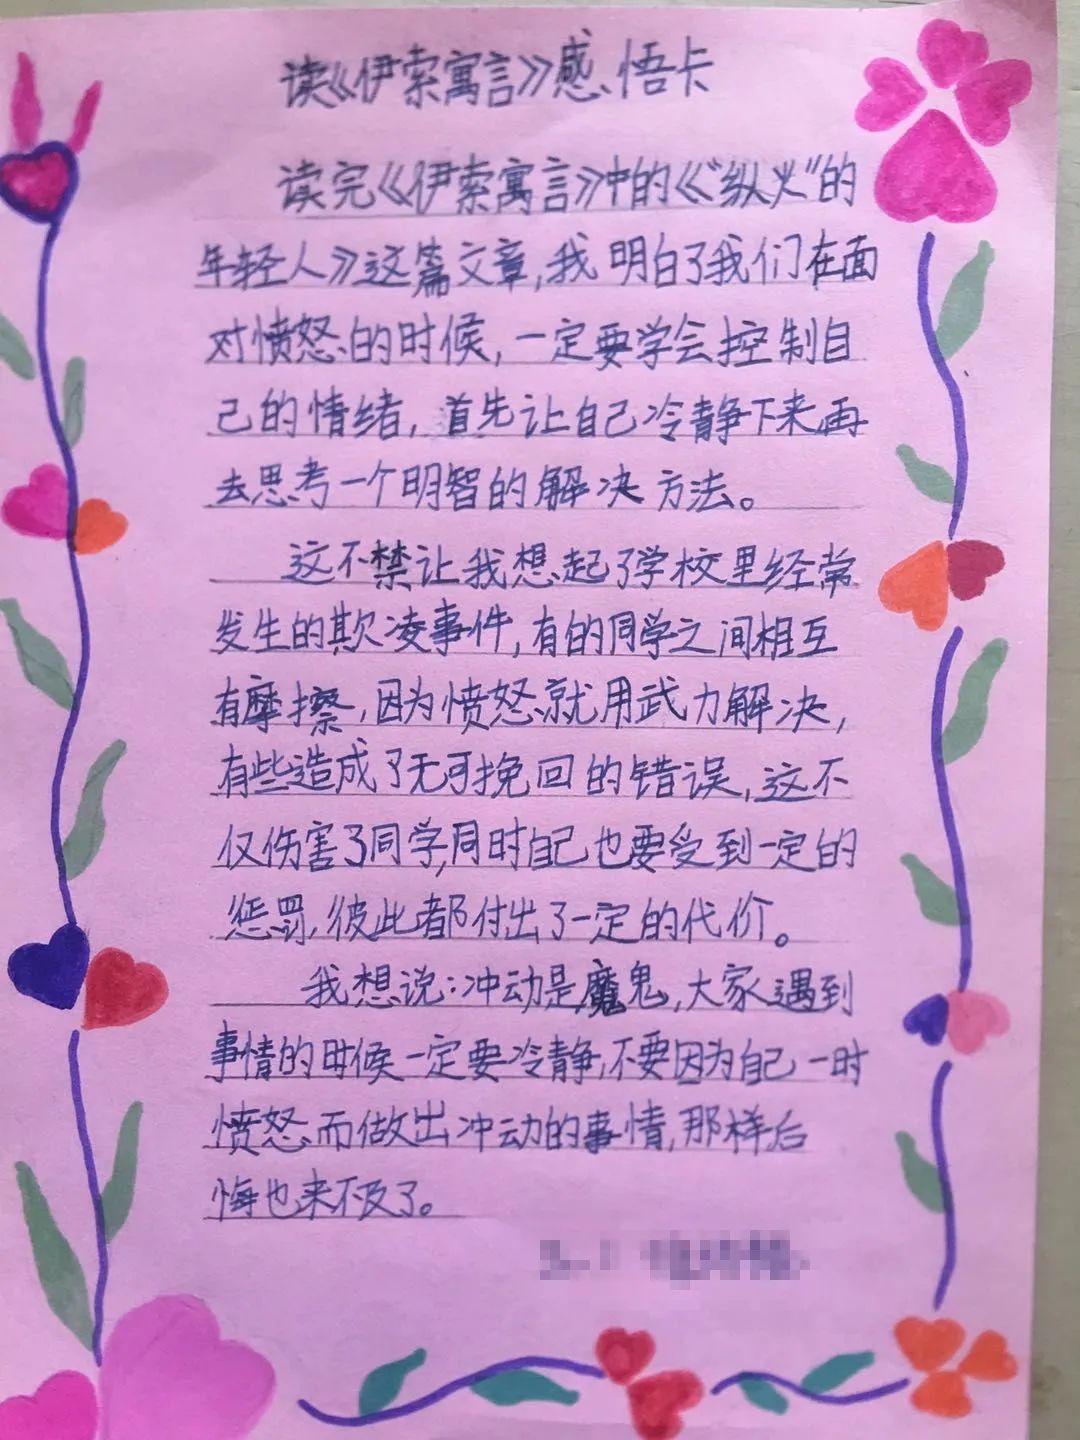 读《伊索寓言》感悟卡
读完《伊索寓言》中的《“纵火”的
年轻人》这篇文章,我明白了我们在面
对愤怒的时候,一定要学会控制自
己的情绪,首先让自己冷静下来再
去思考一个明智的解决方法。
这不禁让我想起了学校里经常
发生的欺凌事件,有的同学之间相互
有摩擦,因为愤怒就用武力解决,
有些造成了无可挽回的错误,这不
仅伤害了同学,同时自己也要受到一定的
惩罚,彼此都付出了一定的代价。
我想说:冲动是魔鬼,大家遇到
事情的时候一定要冷静,不要因为自己一时
愤怒而做出冲动的事情,那样后
悔也来不及了。